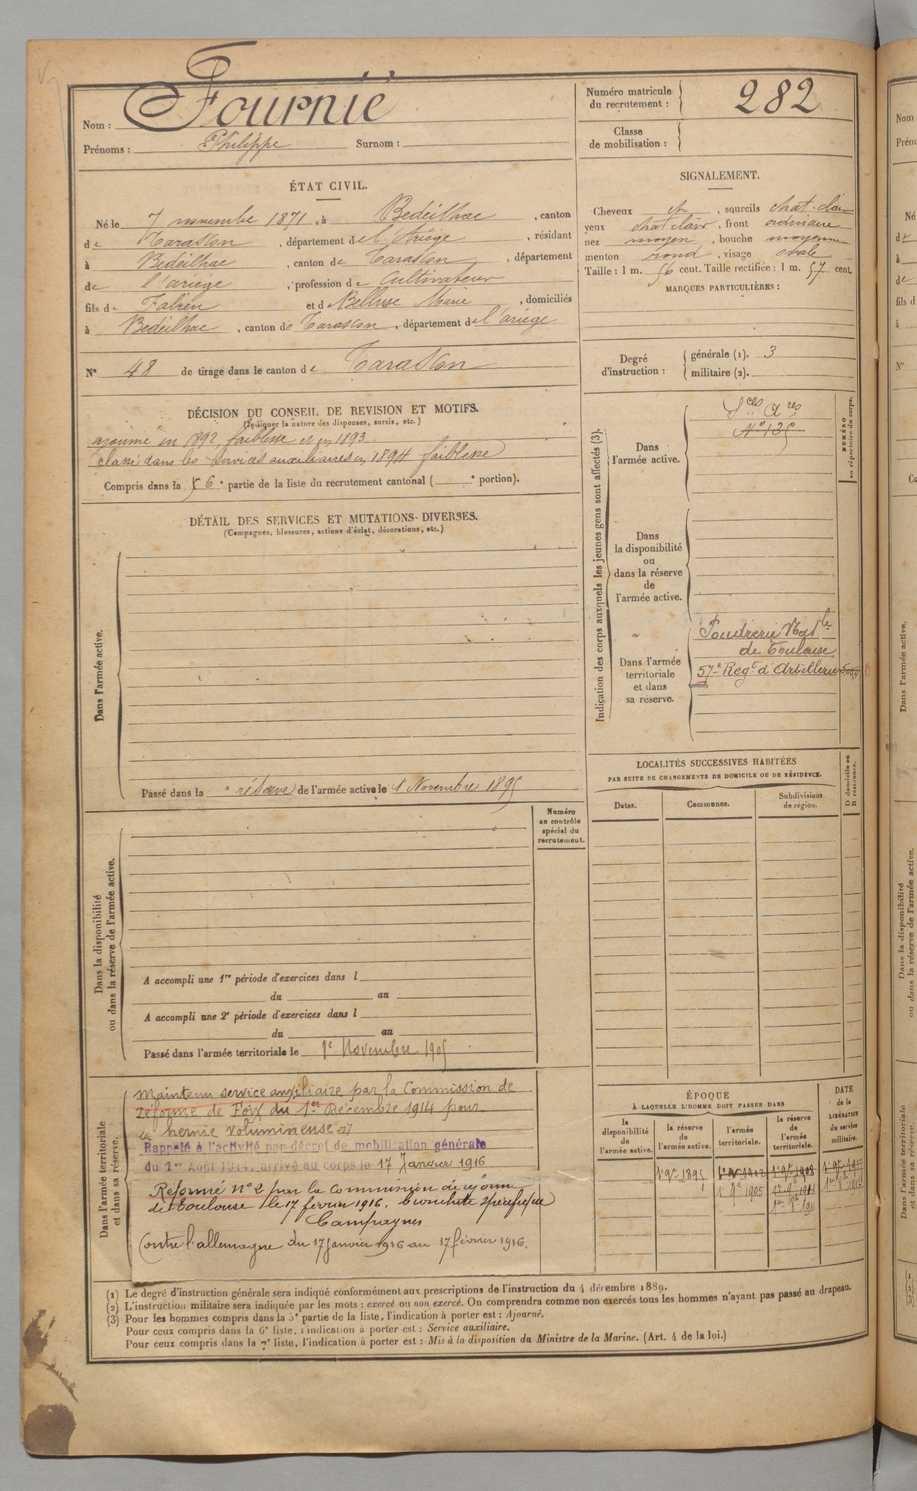 Nom : Fournié
Prénoms : Philippe Surnom :
Numéro matricule
du recrutement : 282
Classe
de mobilisation :
ÉTAT CIVIL.
Né le 7 novembre 1871, à Bedeilhac, canton
de Tarascon, département de l'Ariège, résidant
à Bedeilhac, canton de Tarascon, département
de l'ariege, profession de Cultivateur
fils de Fabien et d Marie, domiciliés
à Bedeilhac, canton de Tarascon, département de l'ariege
N° 48 de tirage dans le canton de Tarascon
SIGNALEMENT.
Cheveux ch, sourcils chat. clair
yeux chat clair, front ordinaire
nez moyen, bouche moyenne
menton rond, visage ovale
Taille : 1 m. 56 cent. Taille rectifiée : 1 m. 57 cent.
MARQUES PARTICULIÈRES :
Degré
d'instruction :
générale (1). 3
militaire (2).
DÉCISION DU CONSEIL DE REVISION ET MOTIFS.
(Indiquer la nature des dispenses, sursis, etc.)
ajourné en 1892, faiblesse et en 1893
Classé dans les services auxiliaires en 1894 faiblesse
Compris dans la 6e partie de la liste du recrutement cantonal ( e portion).
DÉTAIL DES SERVICES ET MUTATIONS DIVERSES.
(Campagnes, blessures, actions d'éclat, décorations, etc.)
Dans l'armée active.
Passé dans la réserve de l'armée active le 1 Novembre 1895
Indication des corps auxquels les jeunes gens sont affectés (3).
NUMÉRO
au répertoire du corps.
Dans
l'armée active.
Sces Ares
N° 125
Dans
la disponibilité
ou
dans la réserve
de
l'armée active.
Dans l'armée
territoriale
et dans
sa réserve.
Poudrerie Natle
de Toulouse
57e Regt d'Artillerie
LOCALITÉS SUCCESSIVES HABITÉES
PAR SUITE DE CHANGEMENTS DE DOMICILE OU DE RÉSIDENCE.
Dates. Communes. Subdivisions
de région.
D domicile ou
R résidence.
Numéro
au contrôle
spécial du
recrutement.
Dans la disponibilité
ou dans la réserve de l'armée active.
A accompli une 1re période d'exercices dans l
du au
A accompli une 2e période d'exercices dans l
du au
Passé dans l'armée territoriale le 1e Novembre 1905
Dans l'armée territoriale
et dans sa réserve.
Maintenu service auxiliaire par la Commission de
réforme de Foix du 1er Décembre 1914 pour
hernie volumineuse
Rappelé à l'activité par décret de mobilisation générale
du 1er Août 1914, arrivé au corps le 17 Janvier 1916
Réformé n° 2 par la commission de réforme
de Toulouse le 17 février 1916. bronchite
Campagnes
Contre l'allemagne du 17 janvier 1916 au 17 février 1916.
ÉPOQUE
À LAQUELLE L'HOMME DOIT PASSER DANS
la
disponibilité
de
l'armée active.
la réserve
de
l'armée active.
l'armée
territoriale.
la réserve
de
l'armée
territoriale.
DATE
de la
LIBÉRATION
du service
militaire.
(1) Le degré d'instruction générale sera indiqué conformément aux prescriptions de l'instruction du 4 décembre 1889.
(2) L'instruction militaire sera indiquée par les mots : exercé ou non exercé. On comprendra comme non exercés tous les hommes n'ayant pas passé au drapeau.
(3) Pour les hommes compris dans la 5e partie de la liste, l'indication à porter est : Ajourné.
Pour ceux compris dans la 6e liste, l'indication à porter est : Service auxiliaire.
Pour ceux compris dans la 7e liste, l'indication à porter est : Mis à la disposition du Ministre de la Marine. (Art. 4 de la loi.)